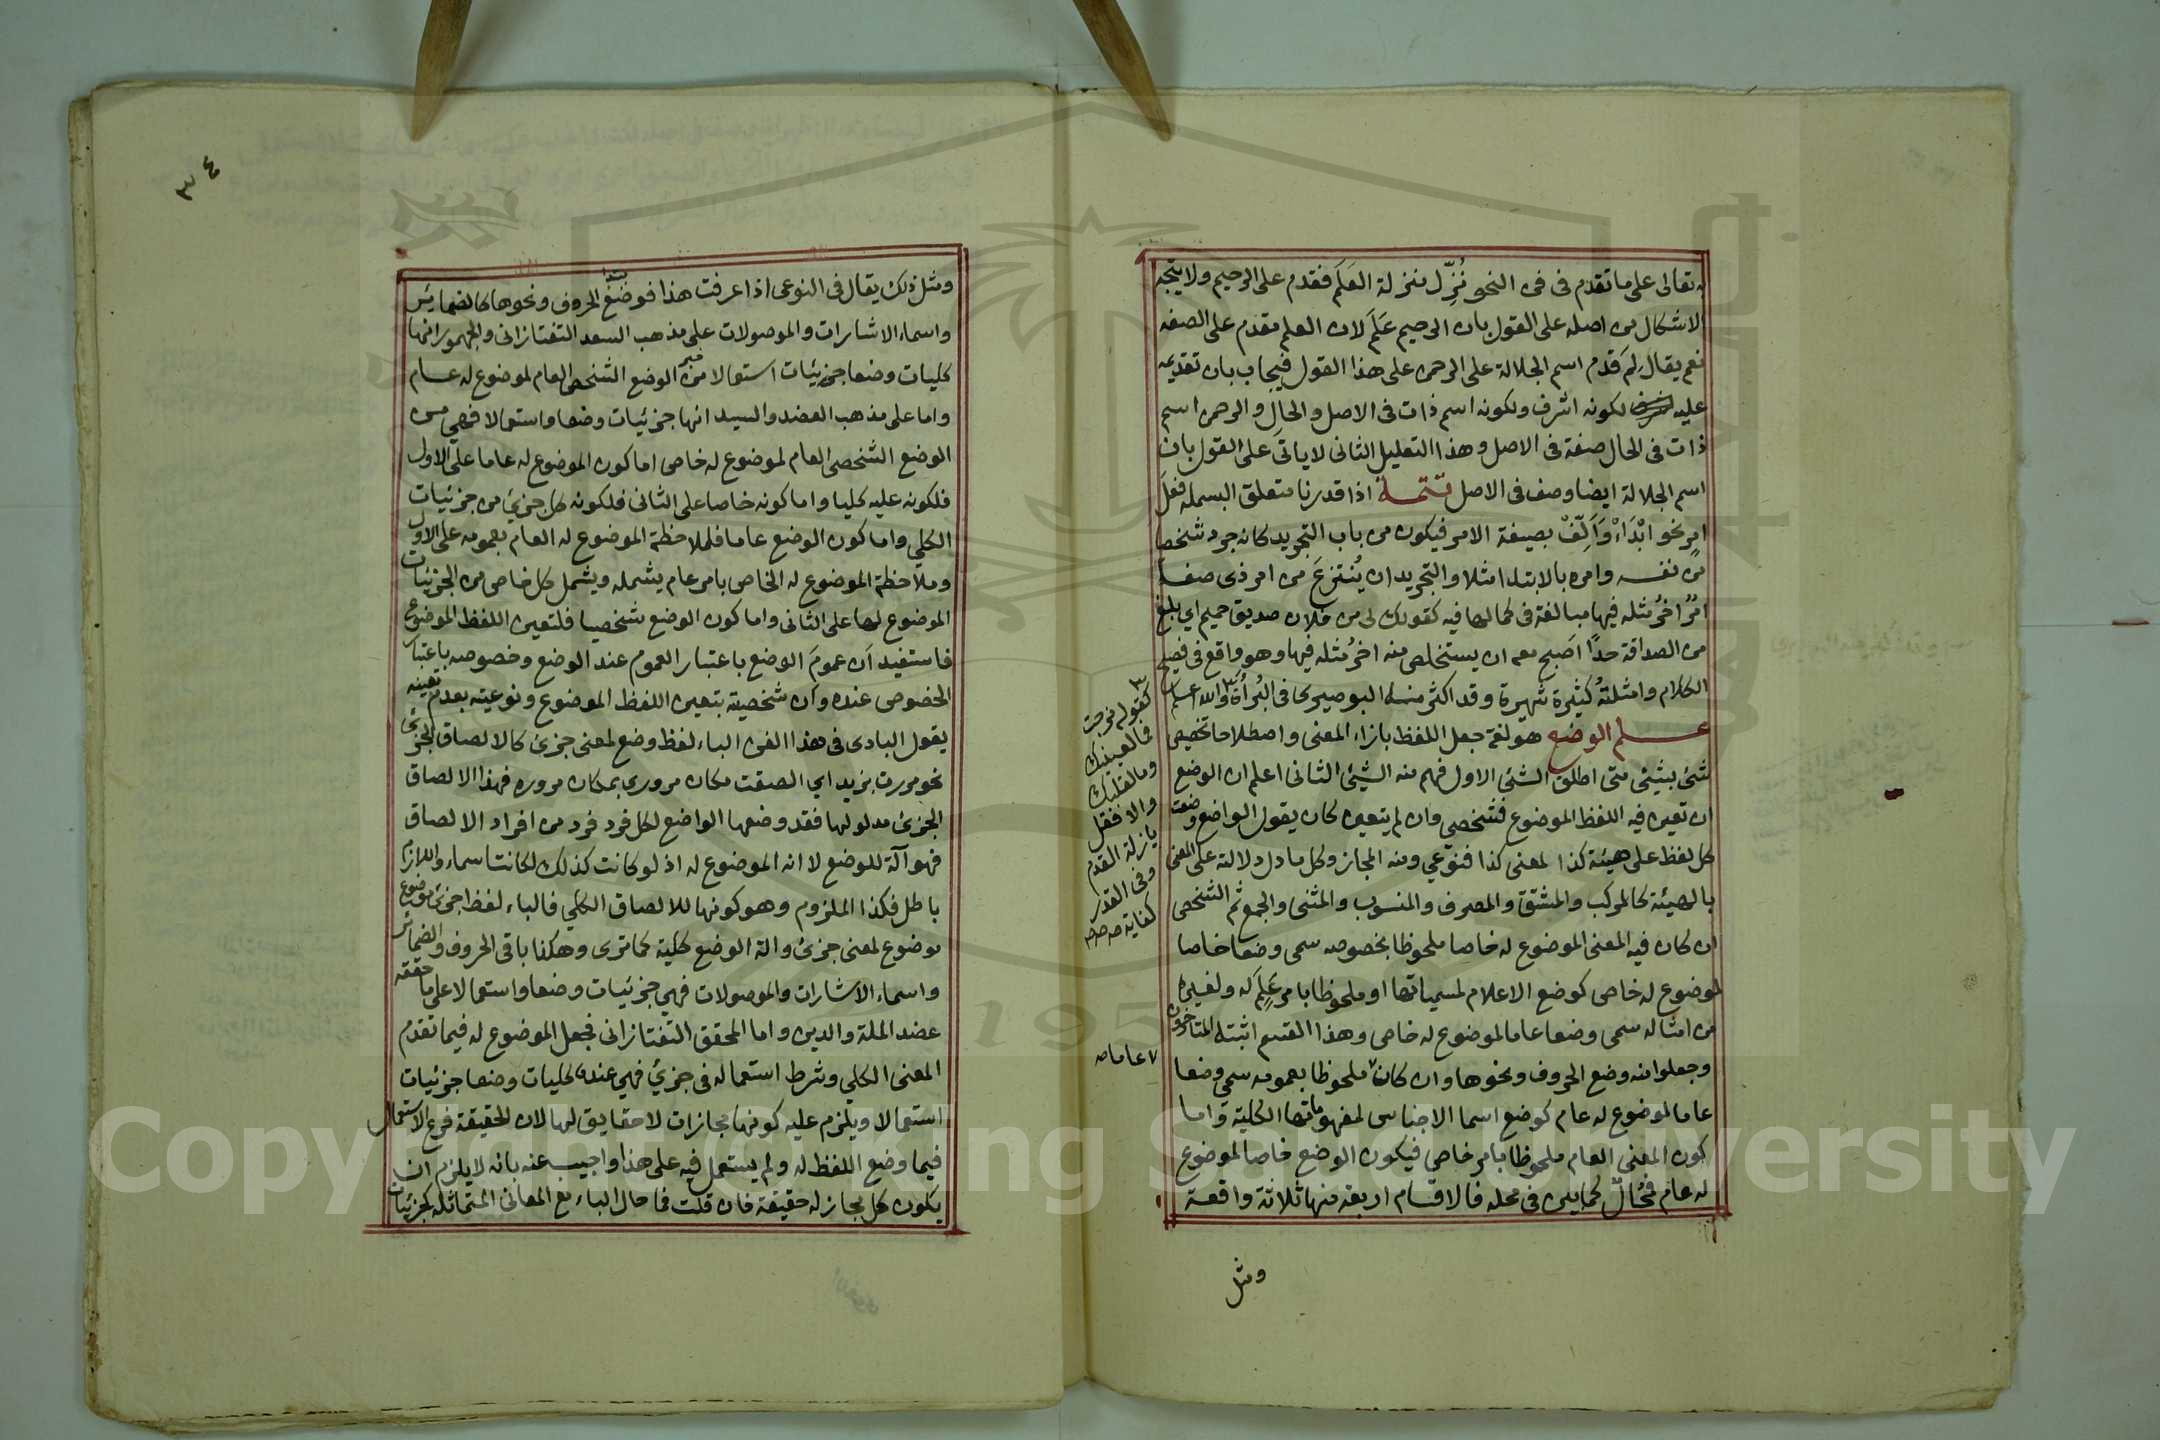 به تعالى على ما تقدم فى فن النحو نُزِّل منزلة العَلَم فقدم على الرحيم ولا يتجه
الاشكال من اصله على القول بان الرحيم عَلَم لان العلم مقدم على الصفه
نعم يقال لِمَ قدم اسم الجلالة على الرحمن على هذا القول فيجاب بان تقديمه
عليه لكونه اشرف ولكونه اسم ذات فى الاصل والحال والرحمن اسم
ذات فى الحال صفة فى الاصل وهذا التعليل الثانى لا ياتى على القول بان
اسم الجلالة ايضا وصف فى الاصل تتمة اذا قدرنا متعلق البسملة فعل
امر نحو ابْدَاْ وَاَلِّفْ بصيغة الامر فيكون من باب التجريد كانه جرد شخصا
من نفسه وامره بالابتدا مثلا والتجريد ان يُنتزعَ من امر ذى صفة
امرٌ اخرُ مثله فيها مبالغة فى كمالها فيه كقولك لى من فلان صديق حميم اي بلغ
من الصداقة حدًا اصبح معه ان يستخلص منه اخرُ مثله فيها وهو واقع فى فصيح
الكلام وامثلتهُ كثيرة شهيرة وقد اكثر منه البوصيرى فى البُرأة ٣ والله اعلم
علم الوضع هو لغة جعل اللفظ بازاء المعنى واصطلاحا تخصيص
شئ بشئ متى اطلق الشئ الاول فهم منه الشئ الثانى اعلم ان الوضع
ان تعين فيه اللفظ الموضوع فشخصي وان لم يتعين كان يقول الواضع وضعت
كل لفظ على هيئة كذا لمعنى كذا فنوعي ومنه المجاز وكل ما دل دلالته على المعنى
بالهيئة كالمركب والمشتق والمصرف والمنسوب والمثنى والجمع ثم الشخصى
ان كان فيه المعنى الموضوع له خاصا ملحوظا بخصوصه سمى وضعا خاصا
لموضوع له خاص كوضع الاعلام لمسمياتها او ملحوظا بامر عَمَّ له ولغيره
من امثاله سمى وضعا عاما لموضوع له خاص وهذا القسم اثبته المتاخرون
وجعلوا منه وضع الحروف ونحوها وان كان ٧ ملحوظا بعمومه سمى وضعا
عاما لموضوع له عام كوضع اسما الاجناس لمفهوماتها الكلية واما
كون المعنى العام ملحوظا بامر خاص فيكون الوضع خاصا لموضوع
له عام فمُحَالٌ كما بين فى محله فالاقسام اربعة منها ثلاثة واقعة
ومثل
٣
كقوله مزجت
فما لعينيك
وما لقلبك
والا فقل
يا زلة القدم
وفى القدر
كفاية صه صه صه
٧ عاما صه
٣٤
ومثل ذلك يقال فى النوعى اذا عرفت هذا فوضع الحروف ونحوها كالضمائر
واسماء الاشارات والموصولات على مذهب السعد التفتازانى والجمهور انها
كليات وضعا جزئيات استعمالا من الوضع الشخصى العام لموضوع له عام
واما على مذهب العضد والسيد انها جزئيات وضعا واستعمالا فهي من
الوضع الشخصى العام لموضوع له خاص اما كون الموضوع له عاما على الاول
فلكونه عليه كليا واما كونه خاصا على الثانى فلكونه كل جزئي من جزئيات
الكلي واما كون الوضع عاما فلملاحظة الموضوع له العام بعمومه على الاول
وملاحظة الموضوع له الخاص بامر عام يشمله ويشمل كل خاص من الجزئيات
الموضوع لها على الثانى واما كون الوضع شخصيا فلتعين اللفظ الموضوع
فاستفيد اَن عمومَ الوضع باعتبار العموم عند الوضع وخصوصه باعتبار
الخصوص عنده وان شخصيته بتعين اللفظ الموضوع ونوعيته بعدم تعينه
يقول البادى فى هذا الفن الباء لفظ وضع لمعنى جزئ كالالصاق الجزئى
نحو مررت بزيد اي الصقت مكان مرورى بمكان مروره فهذا الالصاق
الجزئ مدلولها فقد وضعها الواضع لكل فرد فرد من افراد الالصاق
فهو آلة للوضع لا انه الموضوع له اذ لو كانت كذلك لكانت اسماء واللازم
باطل فكذا الملزوم وهو كونها للالصاق الكلي فالباء لفظ جزئ موضوع
بوضوع لمعنى جزئ والة الوضع كلية كما ترى وهكذا باقى الحروف والضمائر
واسماء الاشارات والموصولات فهي جزئيات وضعا واستعمالا على ما حققه
عضد الملة والدين واما المحقق التفتازانى فجعل الموضوع له فيما تقدم
المعنى الكلي وشرط استعماله فى جزئ فهي عنده كليات وضعا جزئيات
استعمالا ويلزم عليه كونها مجازات لا حقايق لها لان الحقيقة فرع الاستعمال
فيما وضع اللفظ له ولم يستعمل فيه على هذا واجيب عنه بانه لا يلزم ان
يكون كل مجاز له حقيقة فان قلت فما حال الباء مع المعانى المتماثله كجزئيات
Copyright © King Saud University